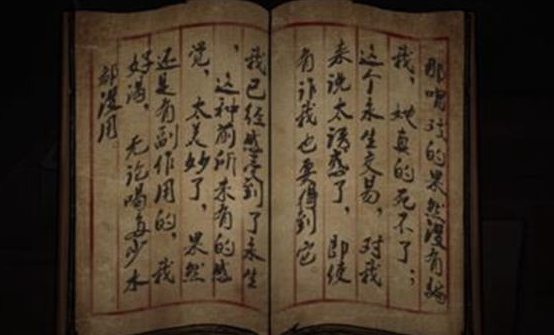 那嘿孩的果然没有骗
我，她真的死不了；
这个永生交易，对我
来说太诱惑了，即使
有诈我也要得到它
我已经感受到了永生
，这种前所未有的感
觉，太美妙了，果然
还是有副作用的，我
好渴，无论喝多少水
都没用